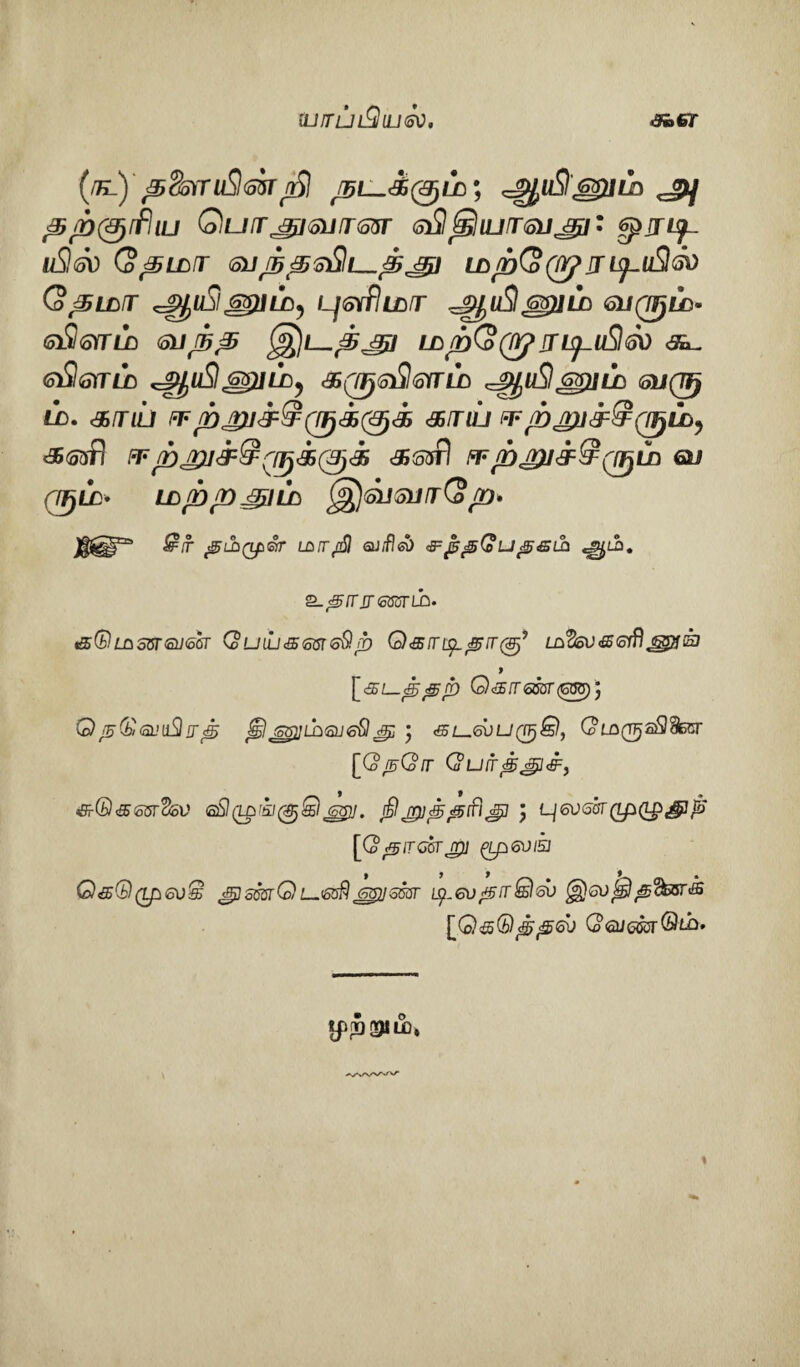 யாப்பியல். ௩௭
(௩) தளையின்றி நடக்கும்; ஆயினும் அ
தற்குரிய பொதுவான விதியாவது: ஓரடி
யில் தேமா வந்தவிடத்து மற்றோரடியில்
தேமா ஆயினும், புளிமா ஆயினும் வரும்.
விளம் வந்த இடத்து மற்றோரடியில் கூ
விளம் ஆயினும், கருவிளம் ஆயினும் வரு
ம். காய் ஈற்றுச்சீருக்குக் காய் ஈற்றுச்சீரும்,
கனி ஈற்றுச்சீருக்குக் கனி ஈற்றுச்சீரும் வ
ரும். மற்றது இவ்வாறே.
☞ சீர் தம்முள் மாறி வரில் சந்தபேதகம் ஆம்.
உதாரணம்.
கடுமனவன் பேய்கனவிற் கொடிதாகு, மலைகளினுங்
[கடத்தற் கொண்ணா;
நெடுவயிரத் தினும்வலிது; கடல்பருகி, மேருவினை
[நேர் போர்த்துச்,
சுடுகனலை விழுங்குகினு. நிறுத்தரிது; புலன்முழுதுந்
[தோன்று மூலங்
கெடுமுலகி துண்டெனினுண் டிலதாகில் இலதிதனைக்
[கெடுத்தல் வேண்டும்.
முற்றும்.